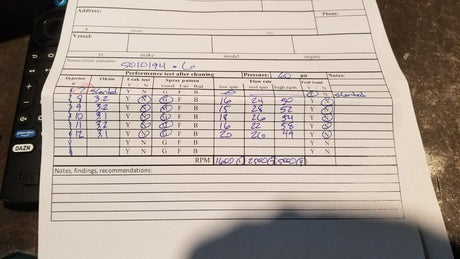 Address:
Phone:
#
street
city
Vessel:
yr
make
model
engine
Notes/client concerns: 5010194 · 6
Performance test after cleaning Pressure: 60 psi Notes:
Injector Ohms Leak test Spray pattern Flow rate
# Y N Good Fair Bad low rpm mid rpm high rpm Y N
7 shorted Y N G F B Y N shorted
8 3.2 Y N G F B 16 24 50 Y N
9 3.2 Y N G F B 15 28 52 Y N
10 3.1 Y N G F B 18 26 54 Y N
11 3.2 Y N G F B 16 22 58 Y N
12 3.1 Y N G F B 20 26 49 Y N
Y N G F B Y N
Y N G F B Y N
RPM 1600
Notes, findings, recommendations:
DAZN